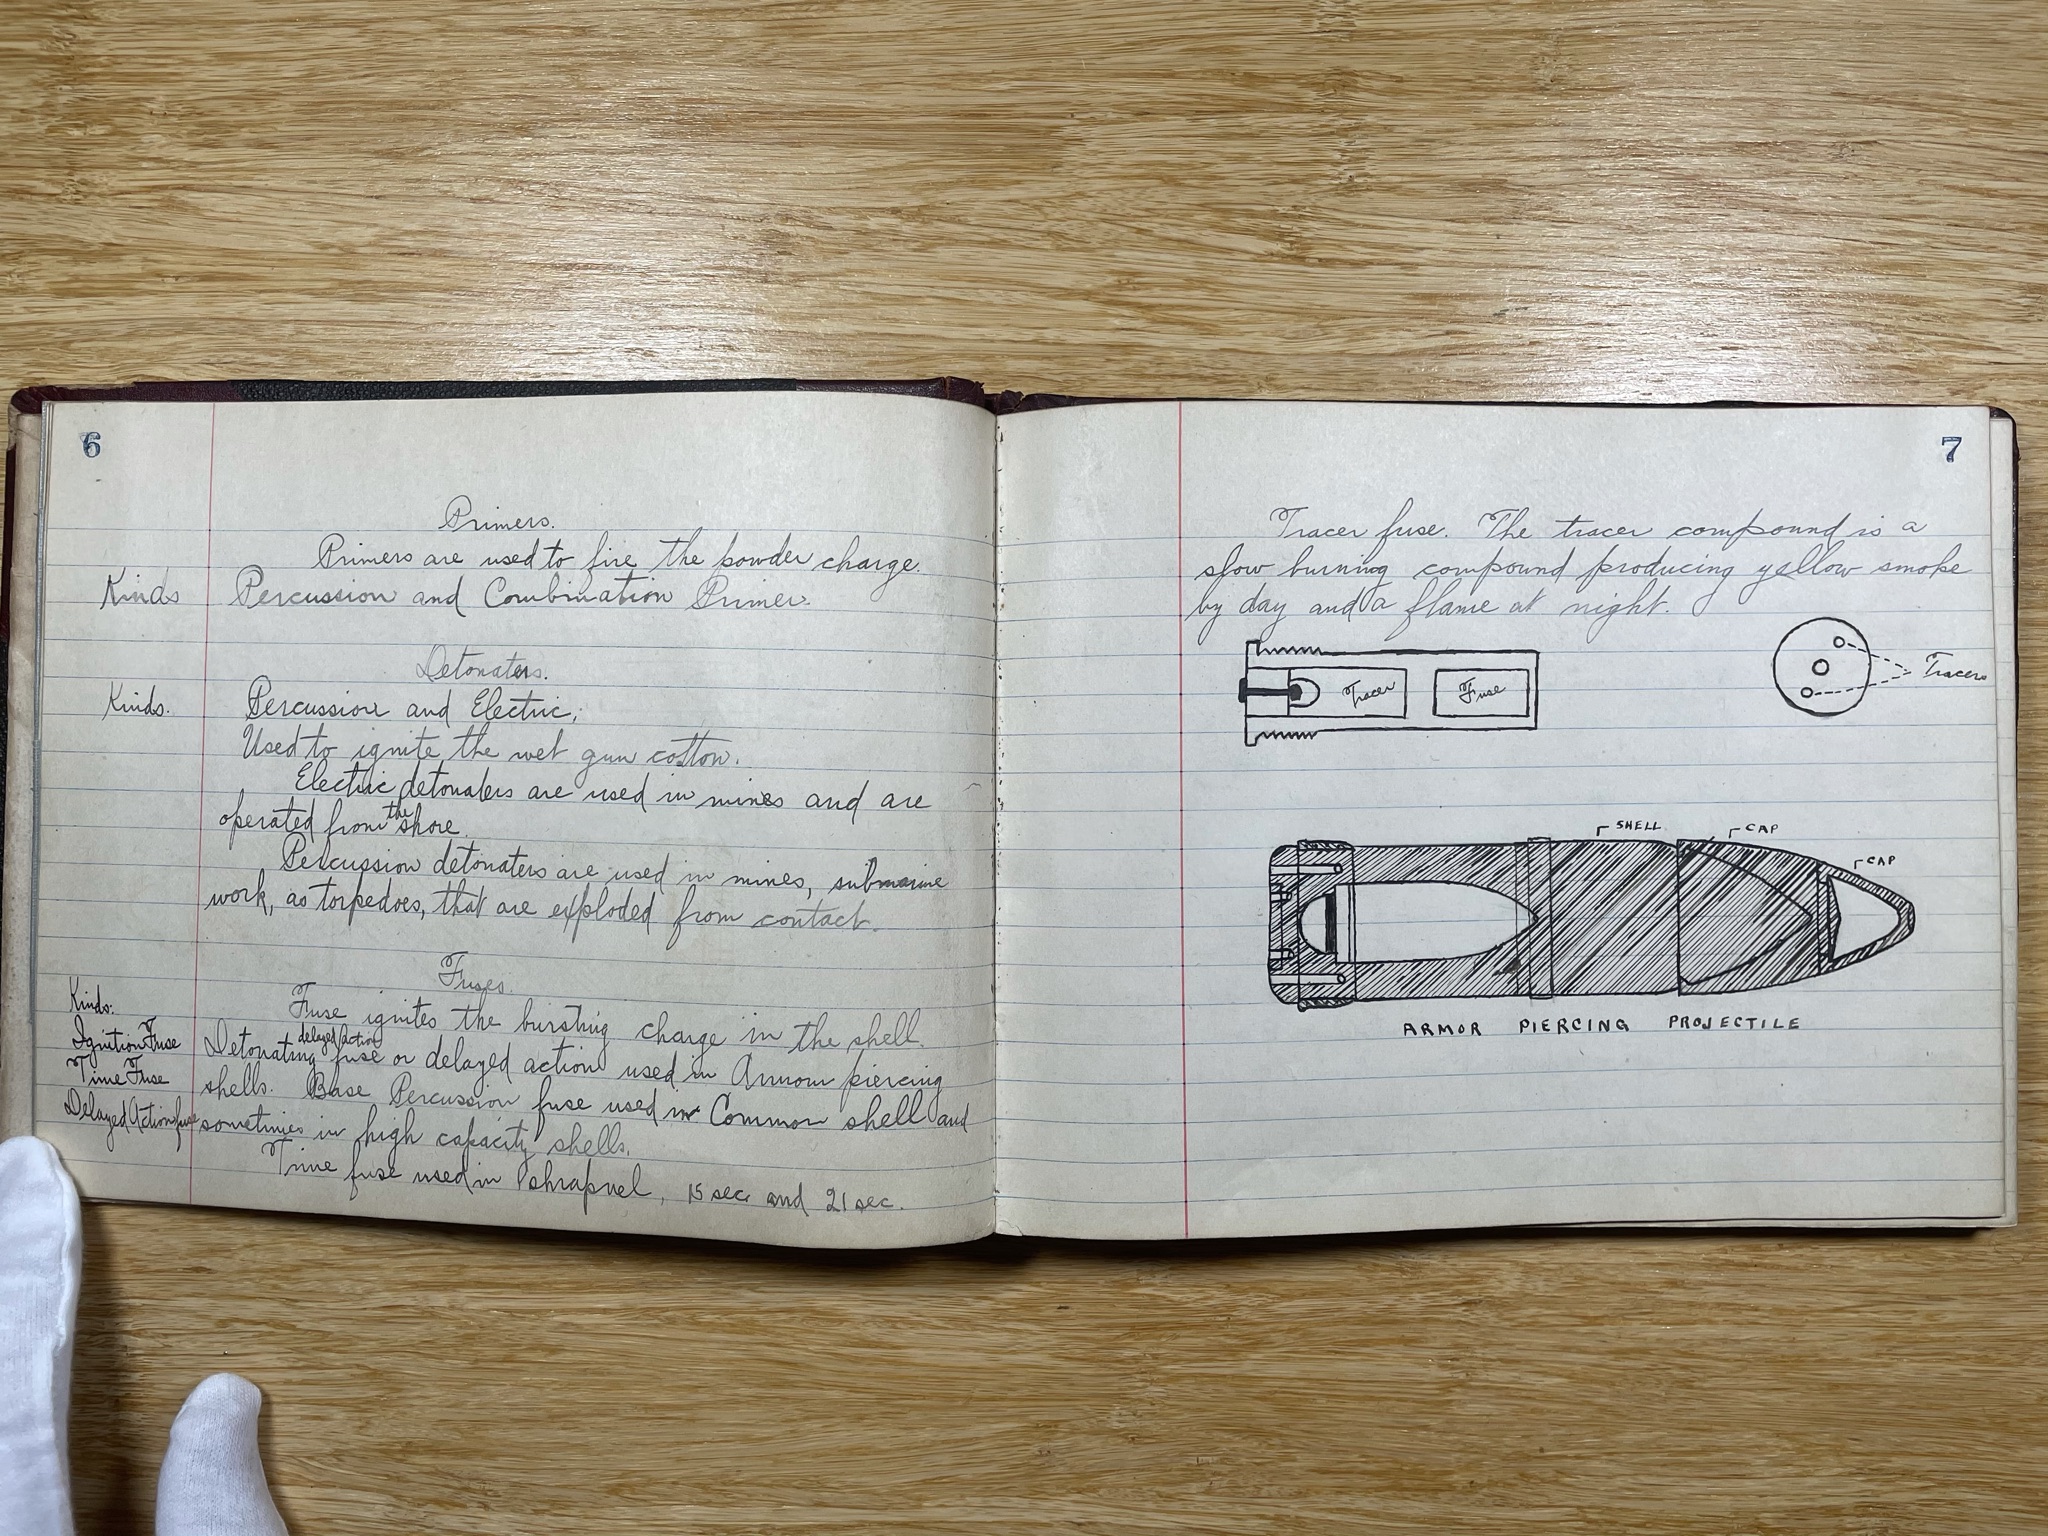 6
Primers.
Primers are used to fire the powder charge.
Kinds Percussion and Combination Primer.
Detonaters.
Kinds. Percussion and Electric;
Used to ignite the wet gun cotton.
Electric detonaters are used in mines and are
operated from the shore.
Percussion detonaters are used in mines, submarine
work, as torpedoes, that are exploded from contact.
Fuses.
Kinds:
Fuse ignites the bursting charge in the shell.
Ignition Fuse
Detonating delayed action fuse or delayed action used in Armour piercing
Time Fuse
shells. Base Percussion fuse used in Common shell and
Delayed Action fuse
sometimes in high capacity shells.
Time fuse used in shrapnel, 15 sec and 21 sec.
7
Tracer fuse. The tracer compound is a
slow burning compound producing yellow smoke
by day and a flame at night.
Tracer Fuse
Tracers
SHELL
CAP
CAP
ARMOR PIERCING PROJECTILE